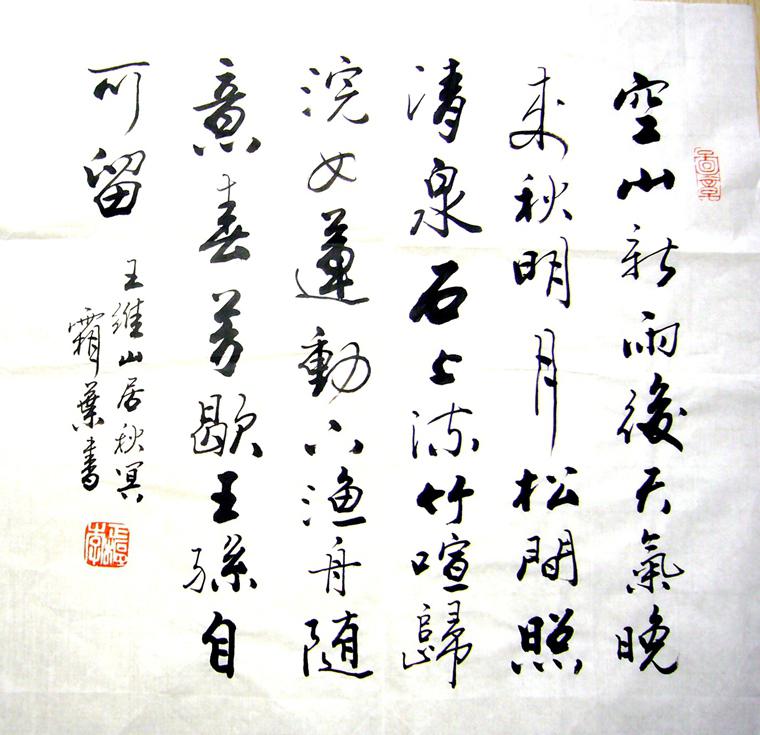 空山新雨後天氣晚
来秋明月松間照
清泉石上流竹喧歸
浣女蓮動下漁舟随
意春芳歇王孫自
可留
王維山居秋冥
霜葉書